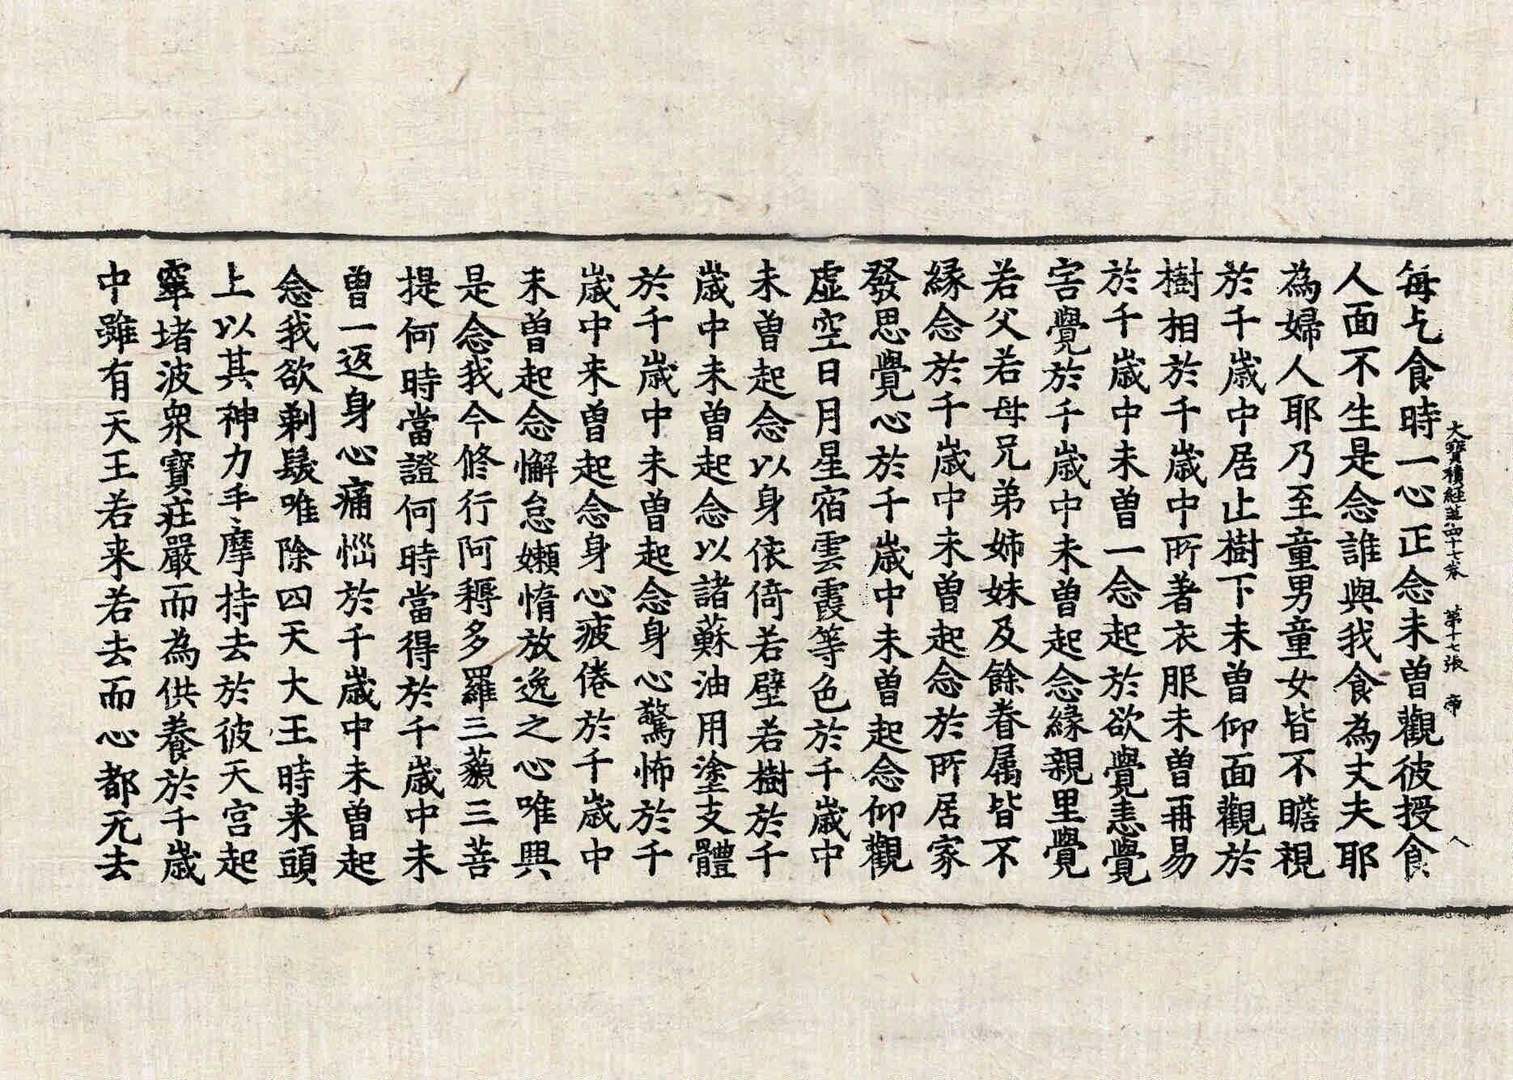 大寶積經第四十七卷 第十七張 帝
每乞食時一心正念未曾觀彼授食
人面不生是念誰與我食為丈夫耶
為婦人耶乃至童男童女皆不瞻視
於千歲中居止樹下未曾仰面觀於
樹相於千歲中所著衣服未曾再易
於千歲中未曾一念起於欲覺恚覺
害覺於千歲中未曾起念緣親里覺
若父若母兄弟姊妹及餘眷属皆不
緣念於千歲中未曾起念於所居家
發思覺心於千歲中未曾起念仰觀
虛空日月星宿雲霞等色於千歲中
未曾起念以身依倚若壁若樹於千
歲中未曾起念以諸蘇油用塗支體
於千歲中未曾起念身心驚怖於千
歲中未曾起念身心疲倦於千歲中
未曾起念懈怠嬾惰放逸之心唯興
是念我今修行阿耨多羅三藐三菩
提何時當證何時當得於千歲中未
曾一返身心痛惱於千歲中未曾起
念我欲剃髮唯除四天大王時来頭
上以其神力手摩持去於彼天宮起
窣堵波衆寶莊嚴而為供養於千歲
中雖有天王若来若去而心都无去